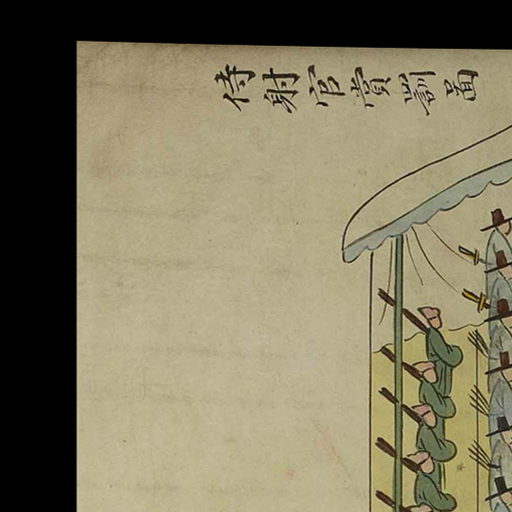 侍射官賞罰圖